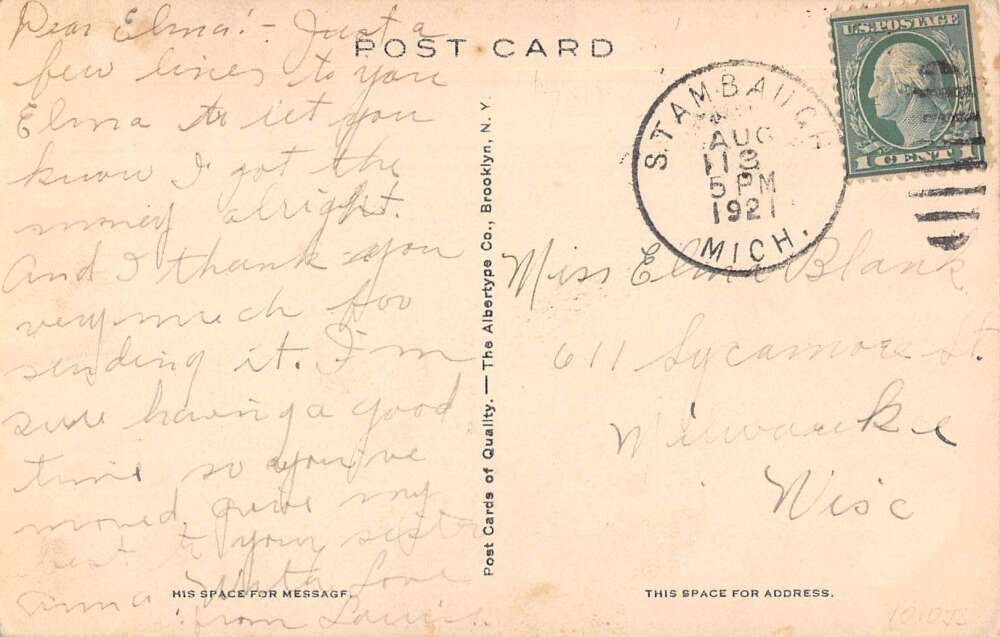 POST CARD
Dear Elma! - Just a
few lines to you
Elma to let you
know I got the
money alright.
And I thank you
very much for
sending it. I'm
sure having a good
time so you've
moved, give my
best to your sister
with love
from Louis.
HIS SPACE FOR MESSAGE.
Post Cards of Quality. — The Albertype Co., Brooklyn, N. Y.
U.S. POSTAGE
1 CENT 1
STAMBAUGH
AUG
13
5 PM
1921
MICH.
Miss Elma Blank
611 Sycamore St.
Milwaukee
Wisc
THIS SPACE FOR ADDRESS.